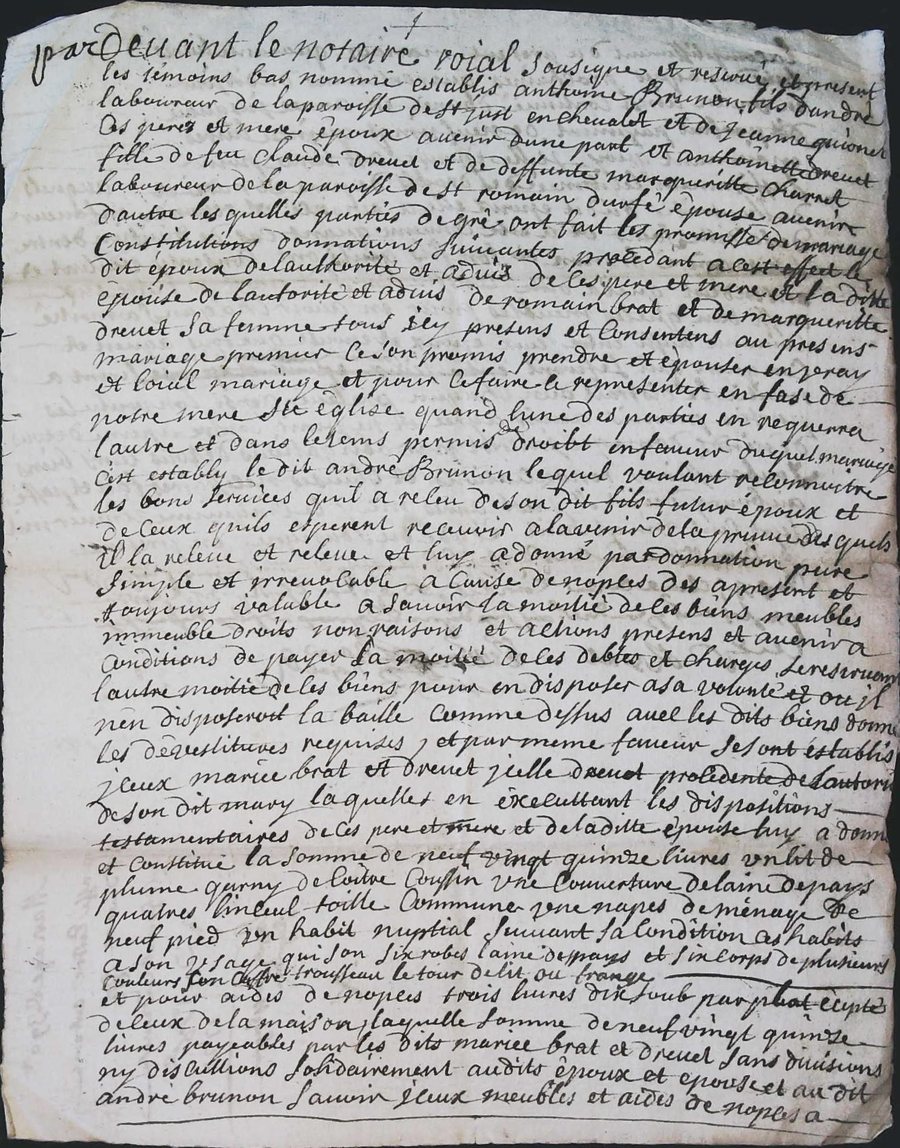 pardevant le notaire roial sousigne et reserué et present
les témoins bas nommé establis anthoine Brunon fils dandré
laboureur de laparoisse de st just enchevalet et de jeanne quionet
Ces peres et mere époux avenir dune part et anthoinette drevet
fille de feu Claude drevet et de deffunte marqueritte Charret
laboureur de la paroisse de st romain durfé épouse avenir
dautre les quelles parties de gré ont fait les promisse de mariage
Constitutions donnations suivantes procedant a cest effect le
dit époux de lauthorité et aduis de ces pere et mere et la ditte
épouse de lautorité et aduis de romain brat et de marqueritte
drevet sa femme tous jcy presens et Consentens au presens
mariage premier ce son promis prendre et épouser en vray
et loial mariage et pour ce faire ce representer en fase de
notre mere ste église quand lune des parties en requerra
lautre et dans le tems permis de droibt en faueur duquel mariage
Cest estably le dit andré Brunon lequel voulant reconnoitre
les bons services quil a releu de son dit fils futur époux et
de ceux quils esperent receuoir a lavenir de la preuue des quels
il la releve et releve et luy a donné par donnation pure
simple et irrevocable à Cause de noples des apresent et
toujours valable a savoir la moitié de ces biens meubles
immeuble droits non raisons et actions presens et avenir a
Conditions de payer la moitié de ces debtes et charges se reservant
lautre moitié de ces biens pour en disposer a sa volonté et ou jl
nen disposeroit la baille Comme dessus avec les dits biens donné
les devestitures requises, et par meme faveur se sont establis
jceux mariee brat et drevet jcelle drevet procedente de lautorité
de son dit mary laquelles en éxecuttant les dispositions
testamentaires de ces pere et mere et de la ditte épouse luy a donné
et Constitué la somme de neuf vingt quinze livres vn lit de
plume garny de coitre Coussin vne Couverture de laine de pays
quatres linceul toille Commune vne napes de ménage de
neuf pied vn habit nuptial suivant sa Condition Ces habits
a son vsage qui son six robes laine de pays et six corps de plusieurs
Couleurs son coffre trousseau le tour de lit ou frange
et pour aides de noples trois livres dix soub par plat éxepté
de ceux de la maison, laquelle somme de neuf vingt quinze
livres payeables par les dits mariee brat et drevet sans divisions
ny discutions solidairement audits époux et épouse et au dit
andré brunon sauoir jceux meubles et aides de noples a